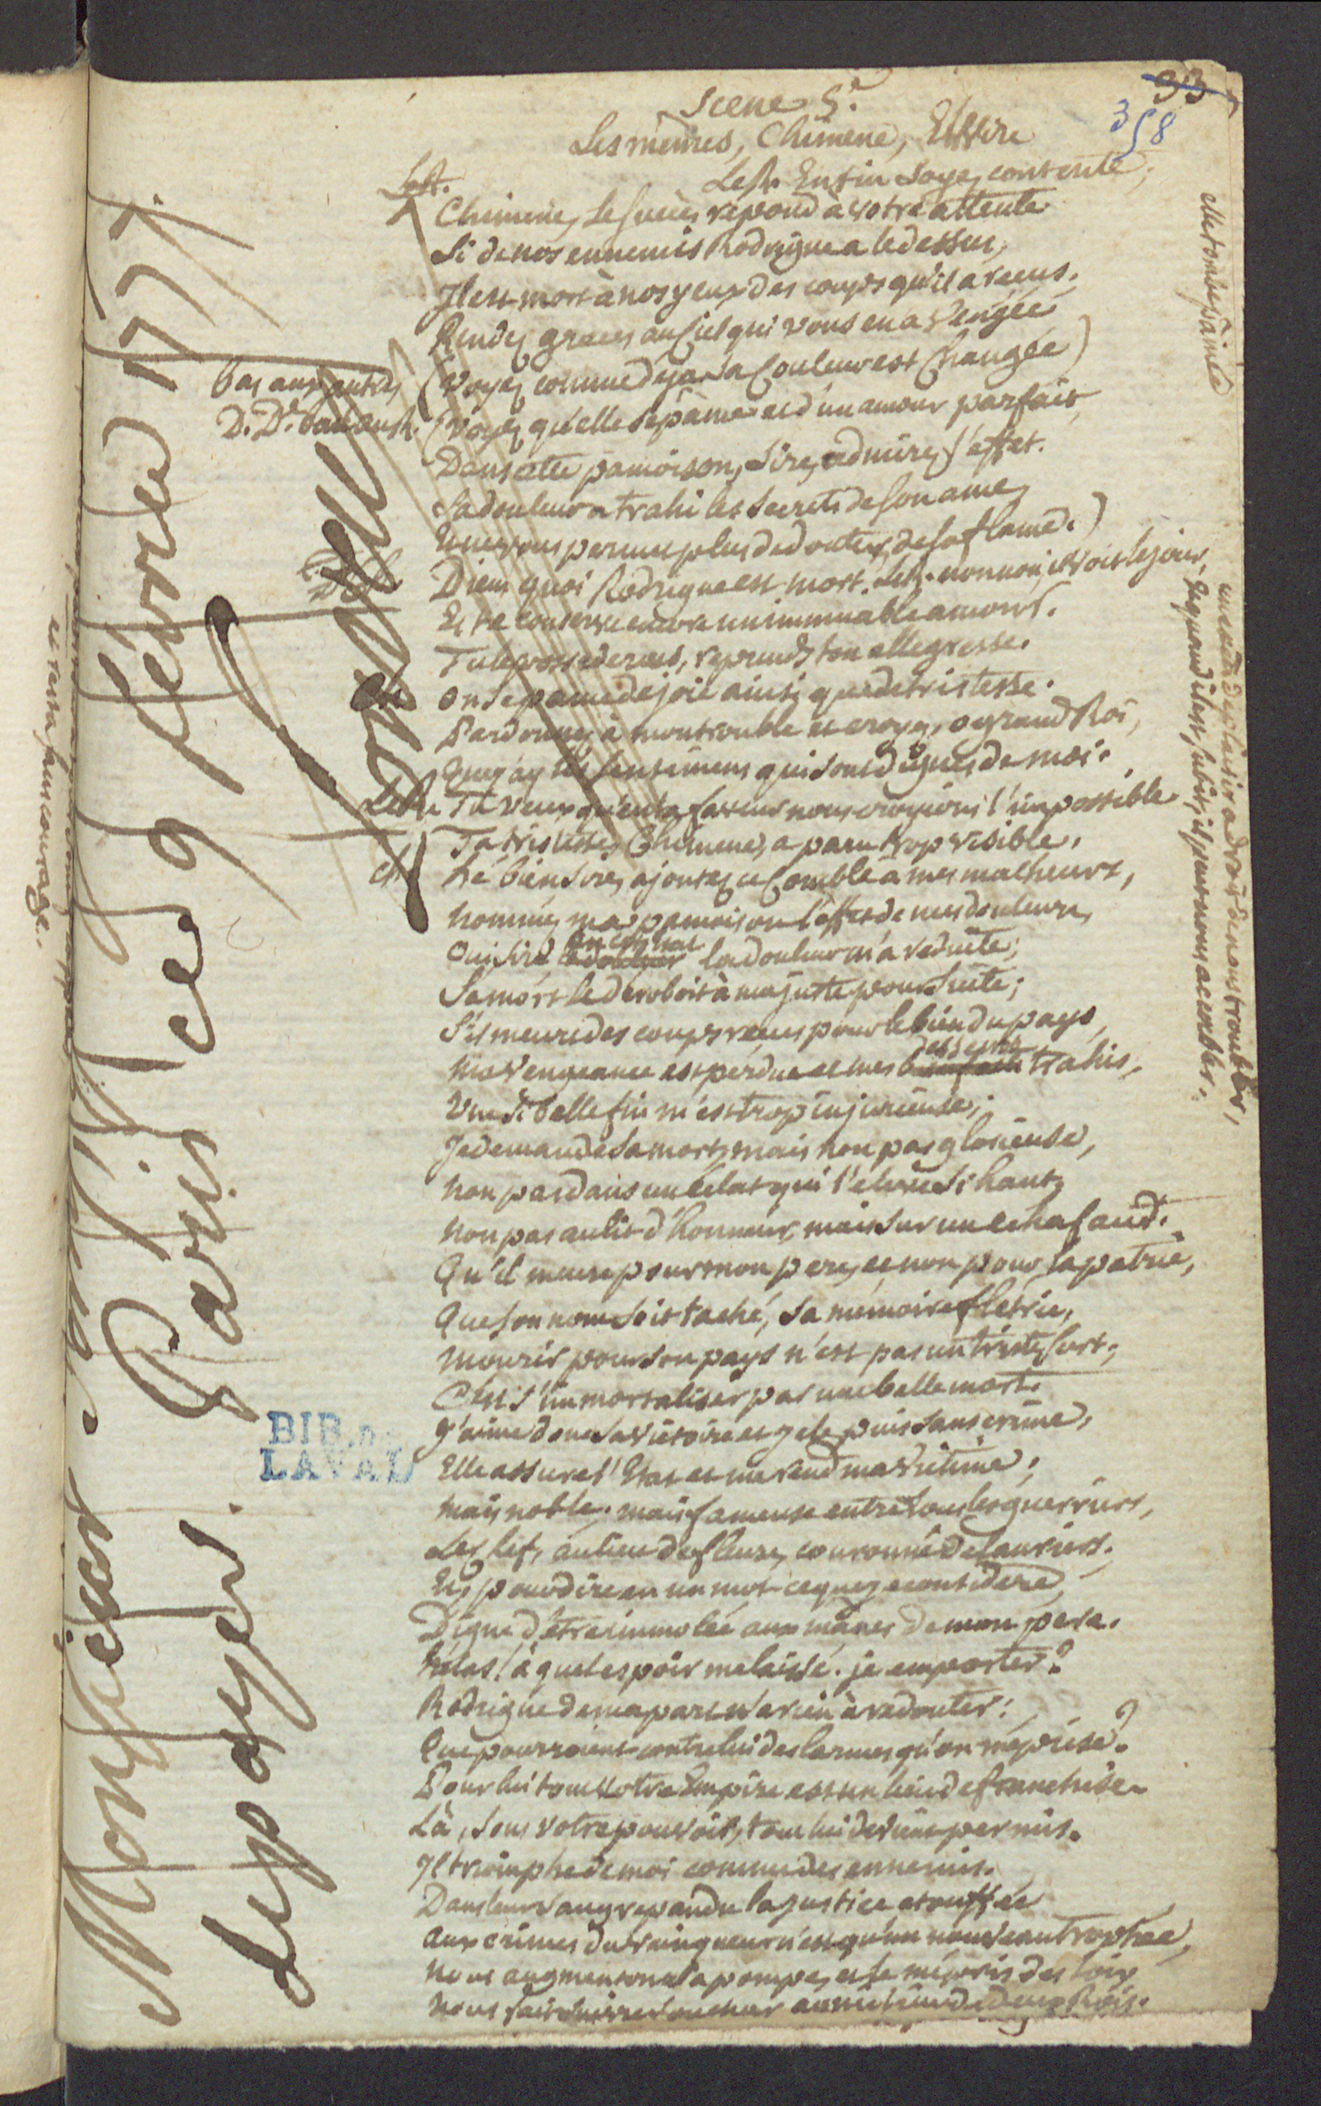 33
358
Scene 5e
Les mêmes, Chimene, Elvire
Le R. Enfin soyez contente,
Chimene, le succès répond à votre attente
Si de nos ennemis Rodrigue a le dessus,
Il est mort à nos yeux des coups qu'il a recus.
Rendez graces au Ciel qui vous en a vengée
(Voyez comme deja sa Couleur est Changée)
bas aux autres
D. De. bas au R.
(Voyez qu'elle se pâme et d'un amour parfait
Dans cette pamoison, Sire, admirez l'effet.
Sa douleur a trahi les secrets de son ame,
Et ne vous permet plus de douter de sa flame.)
elle tombe pâmée
Dieu quoi Rodrigue est mort. Le R. non non il voit le jour,
Et te conserve encore un immuable amour.
Tu le possederas, reprends ton allegresse.
Ch. On se pame de joie ainsi que de tristesse.
Pardonnez à mon trouble et croyez, o grand Roi,
un excès de plaisir a droit de nous troubler,
Et quand il est subit, il peut nous accabler.
Le R. Tu veux qu'en ta faveur nous croyions l'impossible
Ta tristesse, Chimene, a paru trop visible.
Ch. hé bien Sire, ajoutez ce Comble à mes malheurs,
nommez ma pamoison l'effet de mes douleurs,
Oui Sire la douleur m'a reduite;
Sa mort le déroboit à ma juste poursuite;
S'il meurt des coups reçus pour le bien du pays,
Ma Vengeance est perdue et mes desseins trahis.
Une si belle fin m'est trop injurieuse;
Je demande sa mort, mais non pas glorieuse,
non pas dans un éclat qui l'eleve si haut,
non pas au lit d'honneur, mais sur un echafaud.
Qu'il meure pour mon pere, et non pour la patrie,
Que son nom soit taché, sa mémoire fletrie,
Mourir pour son pays n'est pas un triste sort;
C'est s'immortaliser par une belle mort.
J'aime donc sa victoire et je le puis sans crime,
Elle assure l'Etat et me rend ma Victime;
mais noble, mais fameuse entre tous les guerriers,
Le chef, au lieu de fleurs, couronné de lauriers.
Et, pour dire en un mot ce que j'en considere,
Digne d'être immolée aux mânes de mon pere.
helas! à quel espoir me laissé-je emporter?
Rodrigue de ma part n'a rien à redouter:
Que pourroient contre lui des larmes qu'on méprise?
Pour lui tout votre Empire est un lieu de franchise.
Là, sous votre pouvoir, tout lui devient permis.
Il triomphe de moi comme des ennemis.
Dans leur sang repandu la justice etouffée
aux crimes du vainqueur n'est qu'un nouveau trophée,
nous augmentons la pompe, et le mépris des loix
nous fait suivre son char au milieu de deux Rois.
Monsieur
Paris ce 9 fevrier 1777
BIB. DE
LAVAL
et resta sans courage.